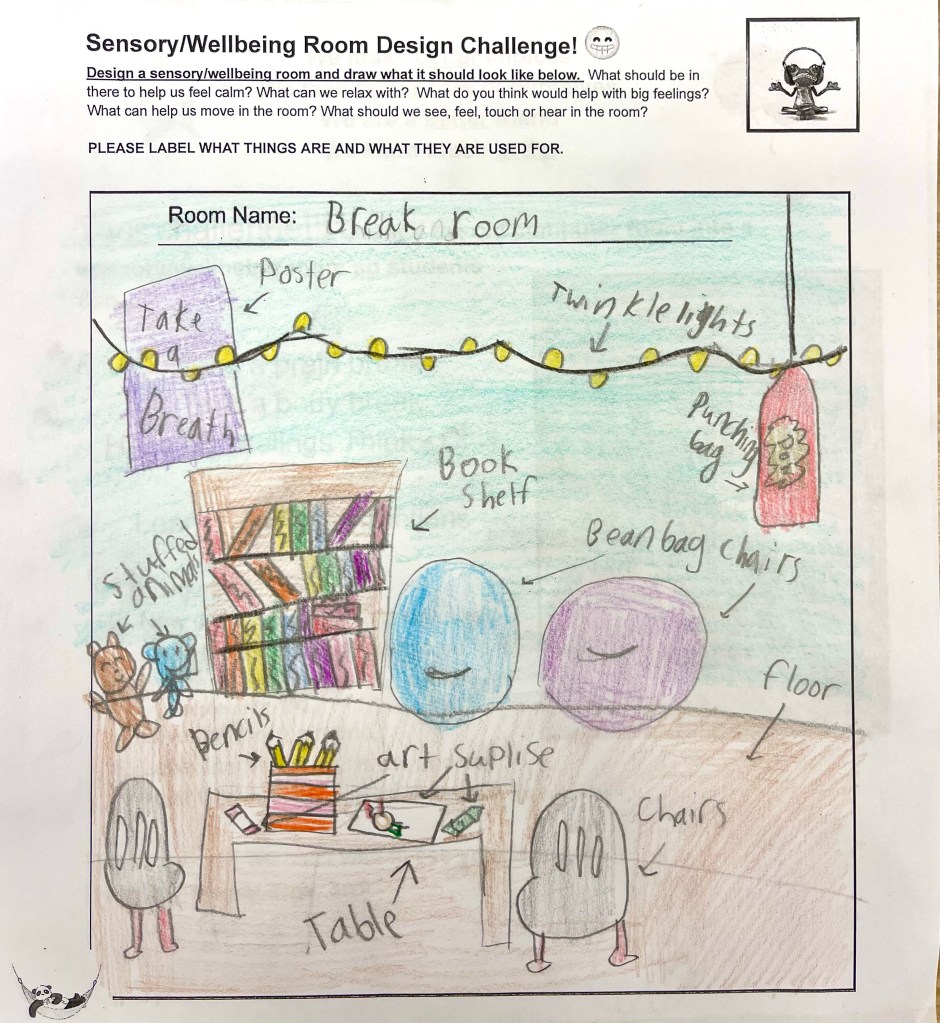 Sensory/Wellbeing Room Design Challenge!
Design a sensory/wellbeing room and draw what it should look like below. What should be in
there to help us feel calm? What can we relax with? What do you think would help with big feelings?
What can help us move in the room? What should we see, feel, touch or hear in the room?
PLEASE LABEL WHAT THINGS ARE AND WHAT THEY ARE USED FOR.
Room Name: Break room
Poster
Take
a
Breath
Twinkle lights
Punching
bag
Book
Shelf
Stuffed
animals
Beanbag chairs
floor
Pencils
art suplise
Chairs
Table